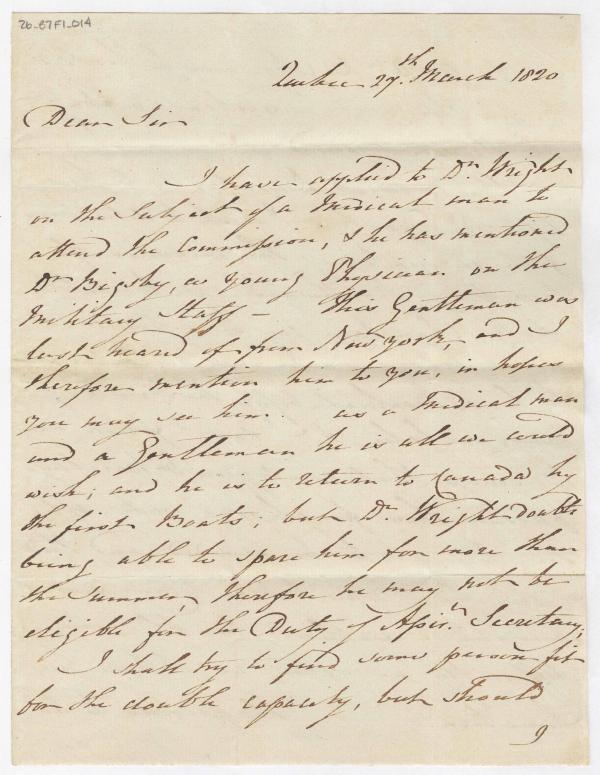 26-87F1-014
Quebec 27.th March 1820
Dear Sir
I have applied to Dr. Wright
on the Subject of a Medical man to
attend the Commission, & he has mentioned
Dr Bigsby, a young Physician on the
Military Staff – This Gentleman was
last heard of from New york, and I
therefore mention him to you, in hopes
you may see him. as a Medical man
and a Gentleman he is all we could
wish; and he is to return to Canada by
the first Boats; but Dr. Wright doubts
being able to spare him for more than
the summer, therefore he may not be
eligible for the Duty of Assis.t Secretary;
I shall try to find some person fit
for the double capacity, but should
I